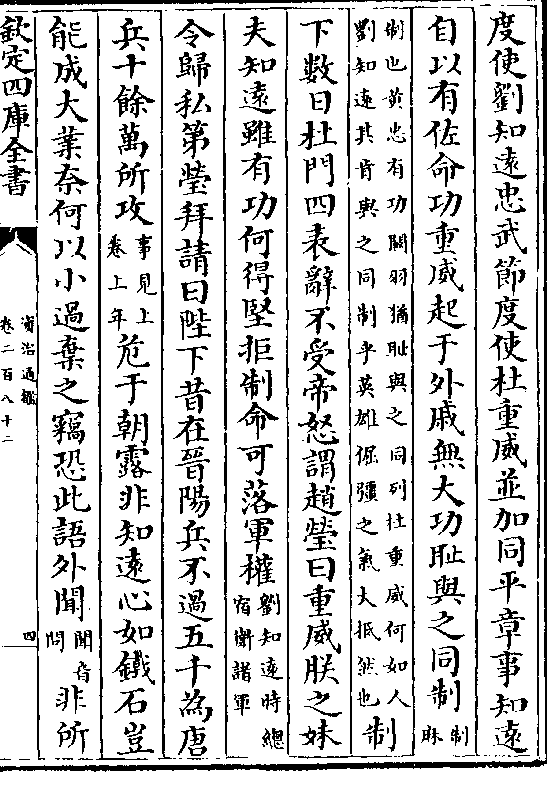 度使劉知遠忠武節度使杜重威並加同平章事知遠
自以有佐命功重威起于外戚無大功耻與之同制制
麻
制也黄忠有功關羽猶耻與之同列杜重威何如人
劉知遠其肯與之同制乎英雄倔彊之氣大抵然也制
下數日杜門四表辭不受帝怒謂趙瑩曰重威朕之妹
夫知遠雖有功何得堅拒制命可落軍權劉知遠時總
宿衛諸軍
令歸私第瑩拜請曰陛下昔在晉陽兵不過五千為唐
兵十餘萬所攻事見上
卷上年危于朝露非知遠心如鐵石豈
能成大業奈何以小過棄之竊恐此語外聞聞音
問非所
欽定四庫全書
資治通鑑
卷二百八十二
四